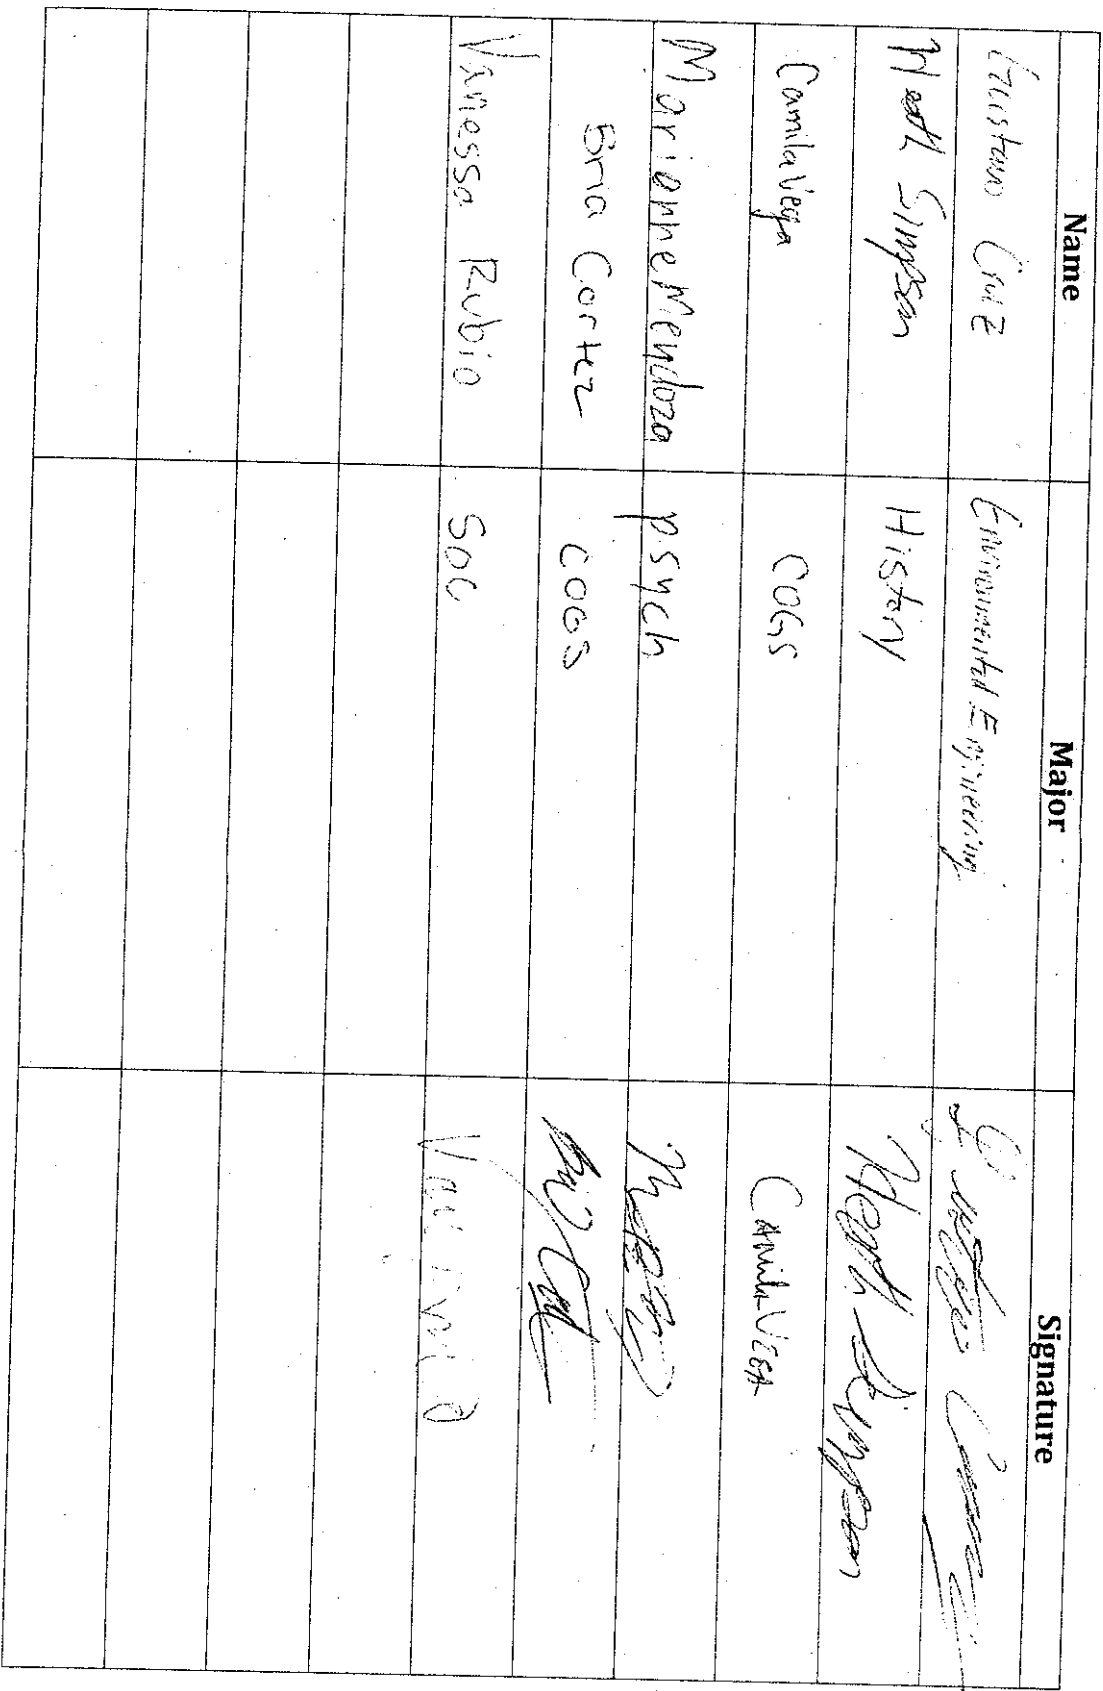 Name Major Signature
Cruz Environmental Engineering
Heath Simpson History Heath Simpson
Camila Vega COGS Camila Vega
Marianne Mendoza psych
Bria Cortez COGS
Vanessa Rubio Soc